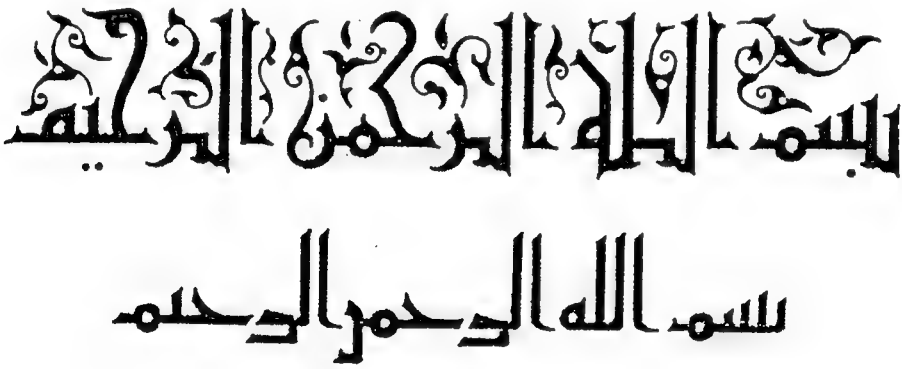 بسم الله الرحمن الرحيم
بسم الله الرحمن الرحيم